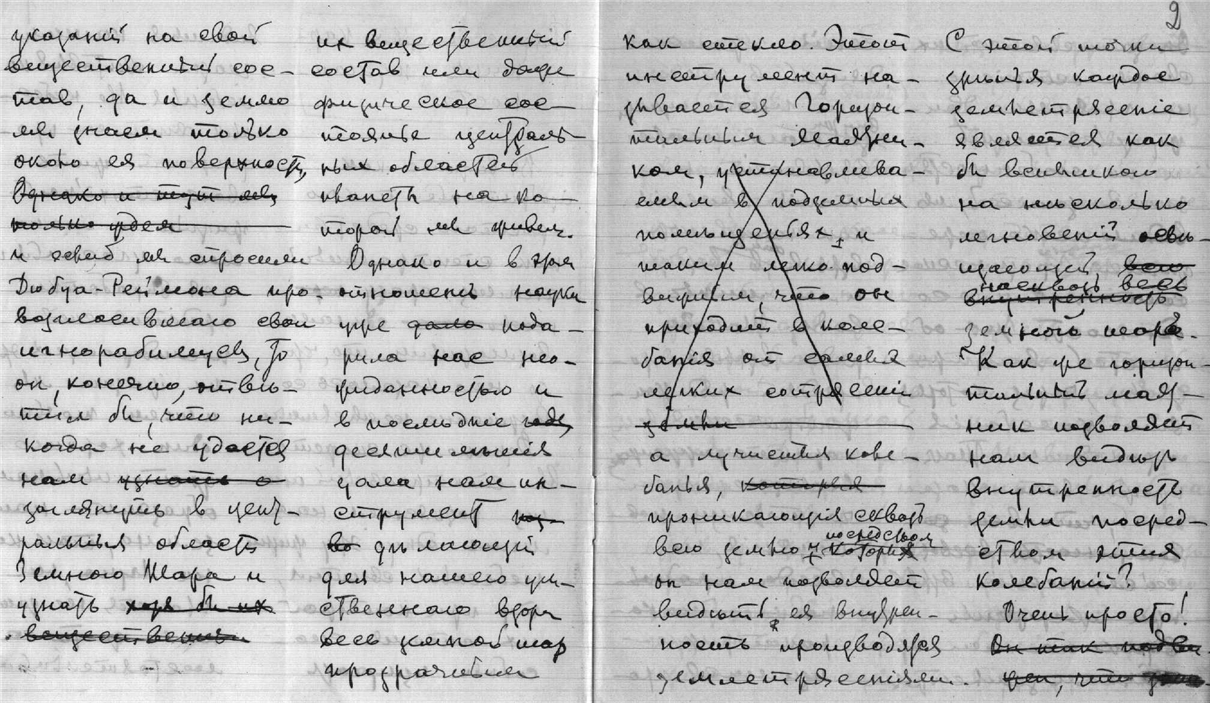 2
указаній на свой
вещественный сос-
тав, да и землю
мы знаем только
около ея поверхности,
Однако и тут мы
только
и если б мы спросили
Дюбуа-Реймона про-
возгласившаго свои
игнорабимусы, то
он, конечно, отвѣ-
тил бы, что ни-
когда не удастся
нам узнать о
заглянуть в цент-
ральныя области
Земного Шара и
узнать хотя бы их
вещественный
их вещественный
состав или даже
физическое сос-
тоянье централь-
ных областей
планеты на ко-
торой мы живем.
Однако и в этом
отношеньи наука
уже дала пода-
рила нас нео-
жиданностью и
в послѣдніе
десятилѣтія
дала нам ин-
струмент
дѣлающій
для нашего ум-
ственнаго взора
весь земной шар
прозрачным
как стекло. Этот
инструмент на-
зывается Горизон-
тальным Маятни-
ком, устанавлива-
емым в подземных
помѣщеніях, и
таким легко под-
вижным, что он
приходит в коле-
банія от самых
легких сотрясеній
земли
а лучистыя коле-
банья, которыя
проникающія сквозь
всю землю, посредством которых
он нам позволяет
видѣть ея внутрен-
ность производятся
землетрясеніями.
С этой точки
зрѣнія каждое
землетрясеніе
является как
бы вспышкою
на нѣсколько
мгновеній освѣ-
щающей всю
насквозь весь
внутренность
земной шар.
Как же горизон-
тальный маят-
ник позволяет
нам видѣть
внутренность
земли посред-
ством этих
колебаній?
Очень просто!
Он так подви-
жен, что